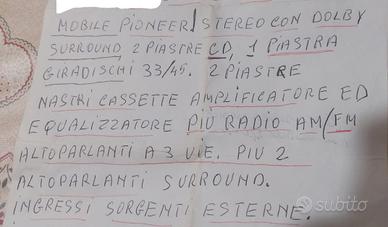 MOBILE PIONEER/STEREO CON DOLBY
SURROUND, 2 PIASTRE CD, 1 PIASTRA
GIRADISCHI 33/45. 2 PIASTRE
NASTRI CASSETTE AMPLIFICATORE ED
EQUALIZZATORE PIÙ RADIO AM/FM
ALTOPARLANTI A 3 VIE. PIU 2
ALTOPARLANTI SURROUND.
INGRESSI SORGENTI ESTERNE.
subito